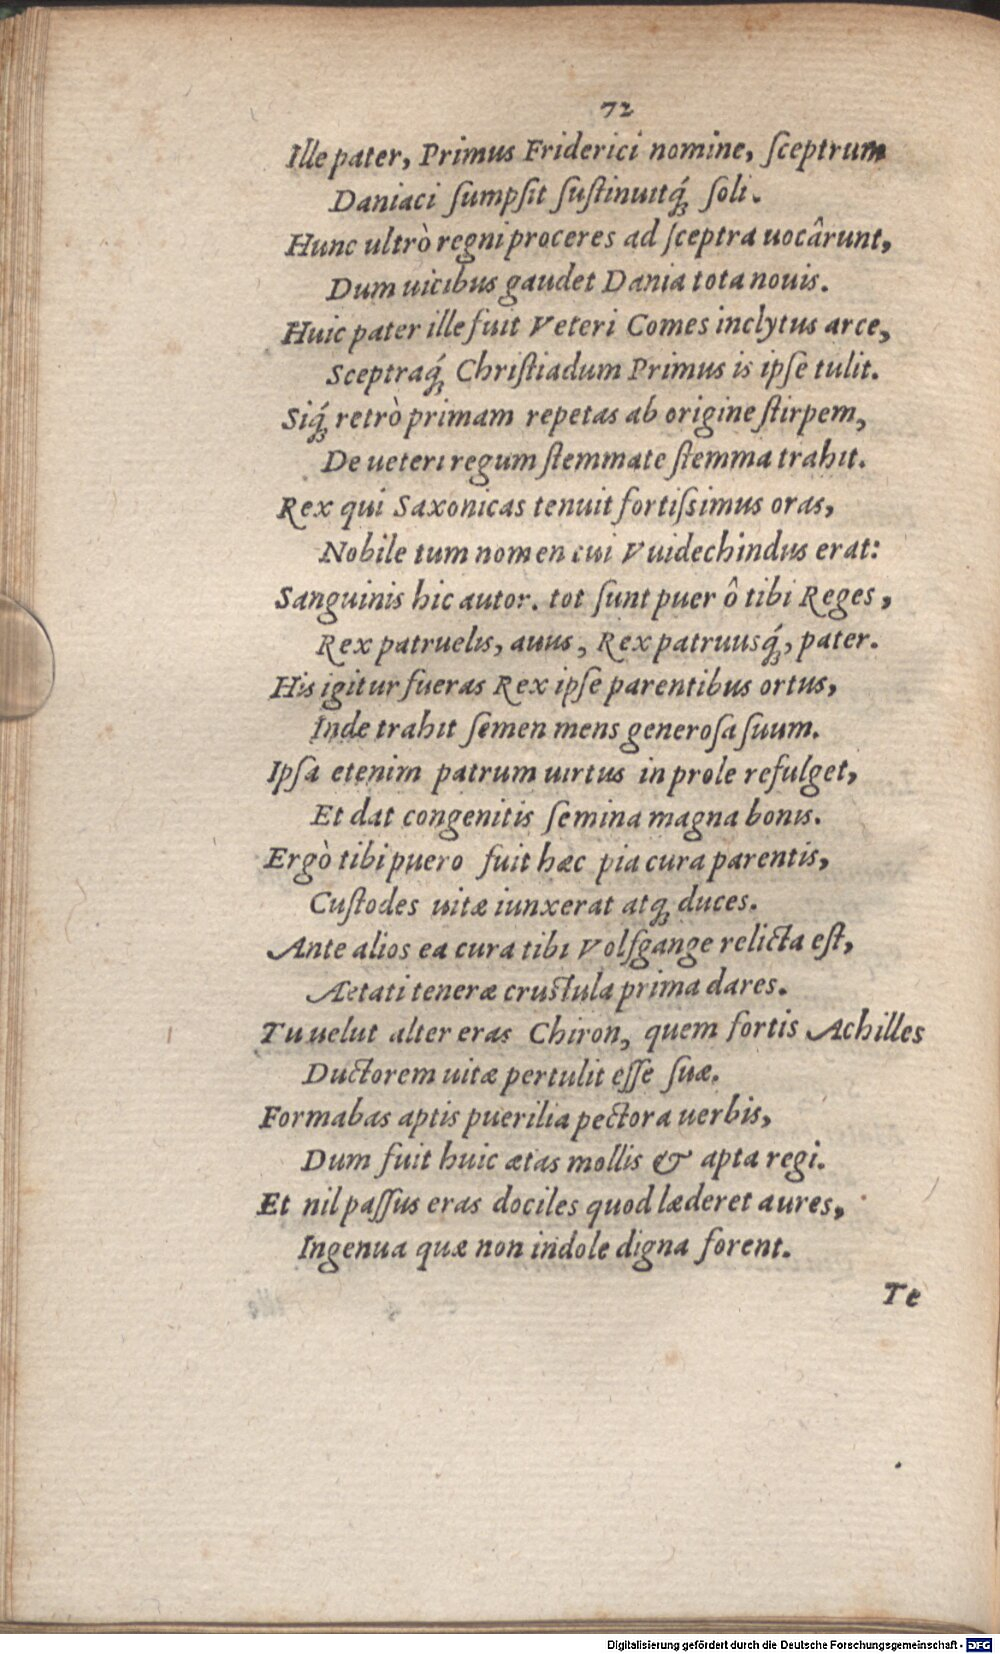 72
Ille pater, Primus Friderici nomine, ſceptrum
Daniaci ſumpſit ſuſtinuitq́; ſoli.
Hunc ultrò regni proceres ad ſceptra uocârunt,
Dum uicibus gaudet Dania tota nouis.
Huic pater ille fuit Veteri Comes inclytus arce,
Sceptraq́; Chriſtiadum Primus is ipſe tulit.
Siq́; retrò primam repetas ab origine ſtirpem,
De ueteri regum ſtemmate ſtemma trahit.
Rex qui Saxonicas tenuit fortiſsimus oras,
Nobile tum nomen cui Vuidechindus erat:
Sanguinis hic autor. tot ſunt puer ô tibi Reges,
Rex patruelis, auus, Rex patruusq́;, pater.
His igitur fueras Rex ipſe parentibus ortus,
Inde trahit ſemen mens generoſa ſuum.
Ipſa etenim patrum uirtus in prole refulget,
Et dat congenitis ſemina magna bonis.
Ergò tibi puero fuit hæc pia cura parentis,
Cuſtodes uitæ iunxerat atq; duces.
Ante alios ea cura tibi Volfgange relicta eſt,
Ætati teneræ cruſtula prima dares.
Tu uelut alter eras Chiron, quem fortis Achilles
Ductorem uitæ pertulit eſſe ſuæ.
Formabas aptis puerilia pectora uerbis,
Dum fuit huic ætas mollis & apta regi.
Et nil paſſus eras dociles quod læderet aures,
Ingenua quæ non indole digna forent.
Te
Digitalisierung gefördert durch die Deutsche Forschungsgemeinschaft - DFG